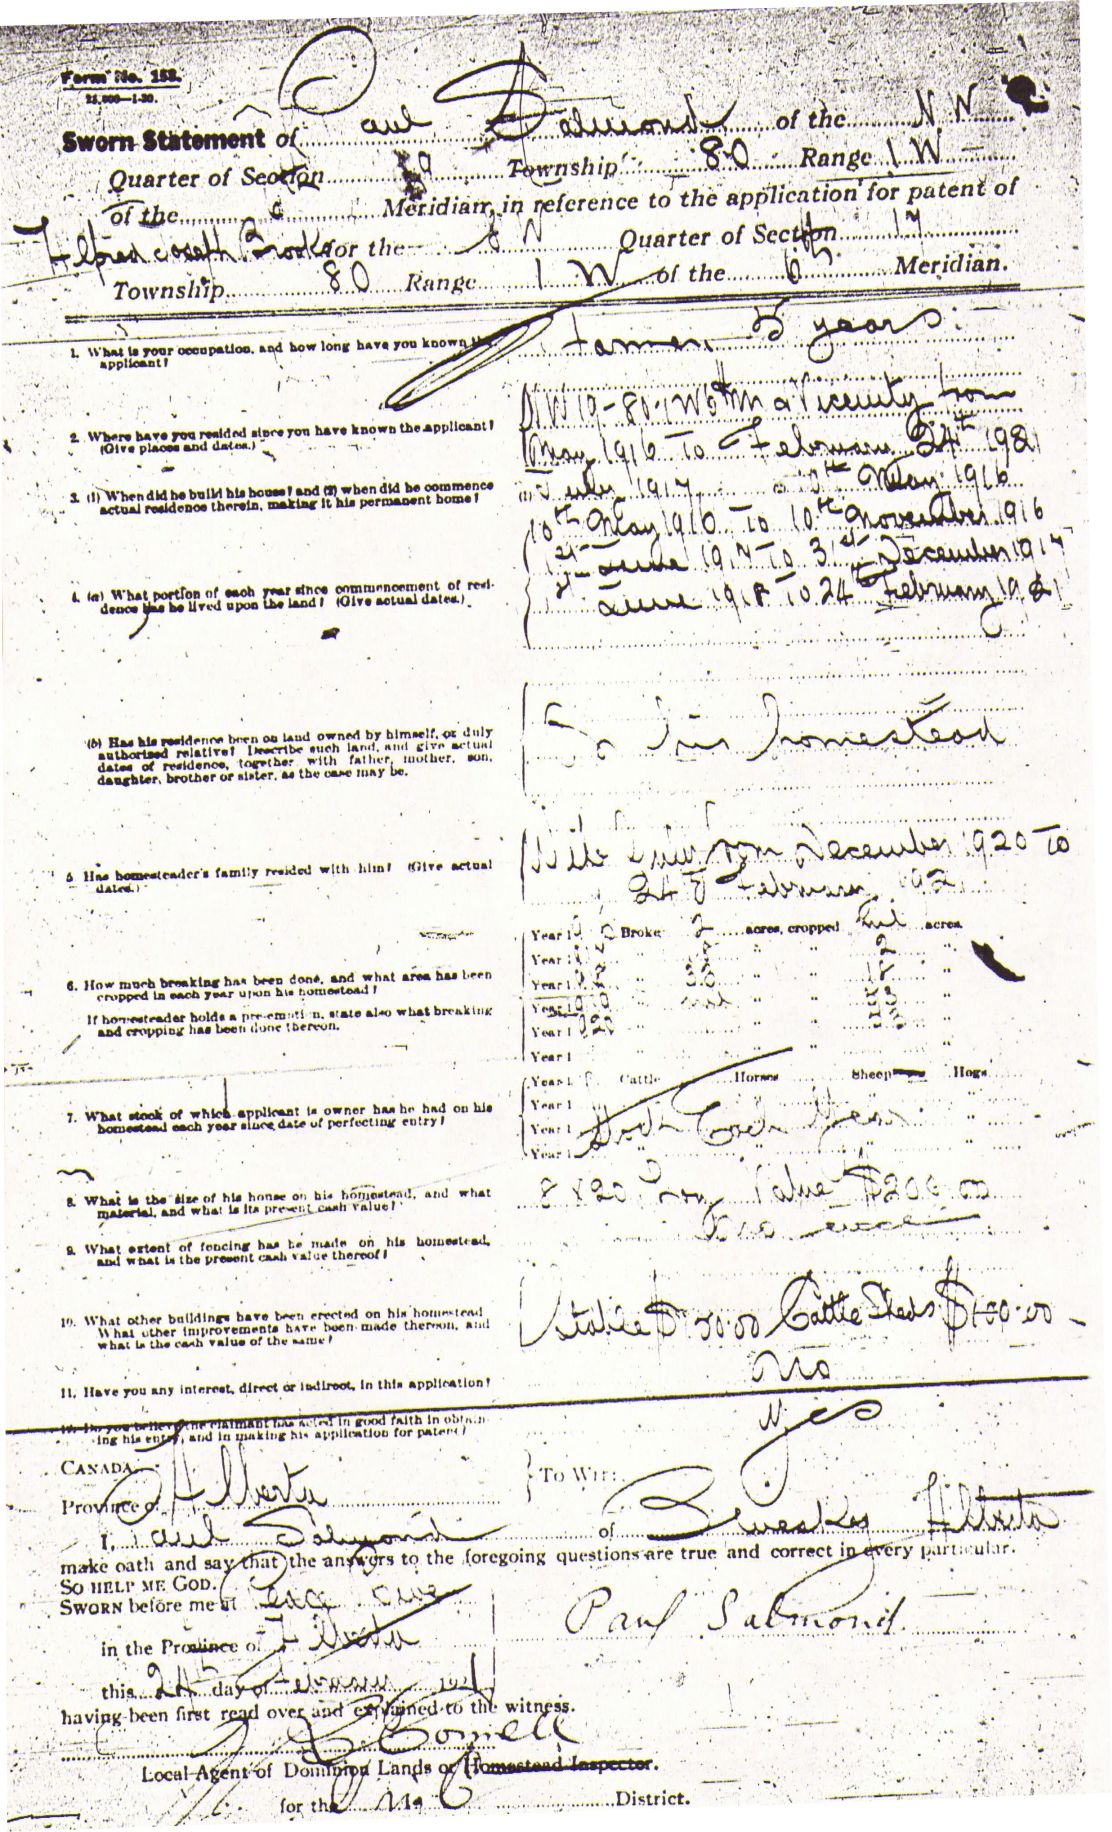 Form No. 153.
25,000—1-20.
Sworn Statement of Paul Salmond of the N W
Quarter of Section 19 Township 80 Range 1 W
of the 6 Meridian, in reference to the application for patent of
Alfred Joseph Brooks for the Quarter of Section 17
Township 80 Range 1 W of the 6th Meridian.
1. What is your occupation, and how long have you known the
applicant?
Farmer 5 years
2. Where have you resided since you have known the applicant?
(Give places and dates.)
NW 19-80-1 W6th M & Vicinity from
May 1916 To February 24th 1921
3. (1) When did he build his house? and (2) when did he commence
actual residence therein, making it his permanent home?
(1) July 1917 10th May 1916
4. (a) What portion of each year since commencement of resi-
dence has he lived upon the land? (Give actual dates.)
10th May 1916 To 10th November 1916
1st June 1917 To 31st December 1917
1st June 1918 To 24th February 1921
(b) Has his residence been on land owned by himself, or duly
authorized relative? Describe such land, and give actual
dates of residence, together with father, mother, son,
daughter, brother or sister, as the case may be.
On his homestead
5. Has homesteader's family resided with him? (Give actual
dates.)
from December 1920 To
24th February 1921
6. How much breaking has been done, and what area has been
cropped in each year upon his homestead?
If homesteader holds a pre-emption, state also what breaking
and cropping has been done thereon.
Year 1 Broke 2 acres, cropped nil acres.
Year 1 " " "
Year 1 " " "
Year 1 nil " " "
Year 1 " " "
Year 1 " " "
7. What stock of which applicant is owner has he had on his
homestead each year since date of perfecting entry?
Year 1 Cattle Horses Sheep Hogs
Year 1
Year 1 Stock Each Year
Year 1
8. What is the size of his house on his homestead, and what
material, and what is its present cash value?
18 x 20 Log Value $200.00
9. What extent of fencing has he made on his homestead,
and what is the present cash value thereof?
No fence
10. What other buildings have been erected on his homestead
What other improvements have been made thereon, and
what is the cash value of the same?
Stable $ Cattle Sheds $100.00
11. Have you any interest, direct or indirect, in this application?
No
12. Do you believe the claimant has acted in good faith in obtain-
ing his entry, and in making his application for patent?
Yes
CANADA. To Wit:
Province of Alberta
I, Paul Salmond of Bluesky Alberta
make oath and say that the answers to the foregoing questions are true and correct in every particular.
SO HELP ME GOD.
SWORN before me at Peace River
in the Province of Alberta
Paul Salmond
this 24th day of February 1921
having been first read over and explained to the witness.
Local Agent of Dominion Lands or Homestead Inspector.
for the District.